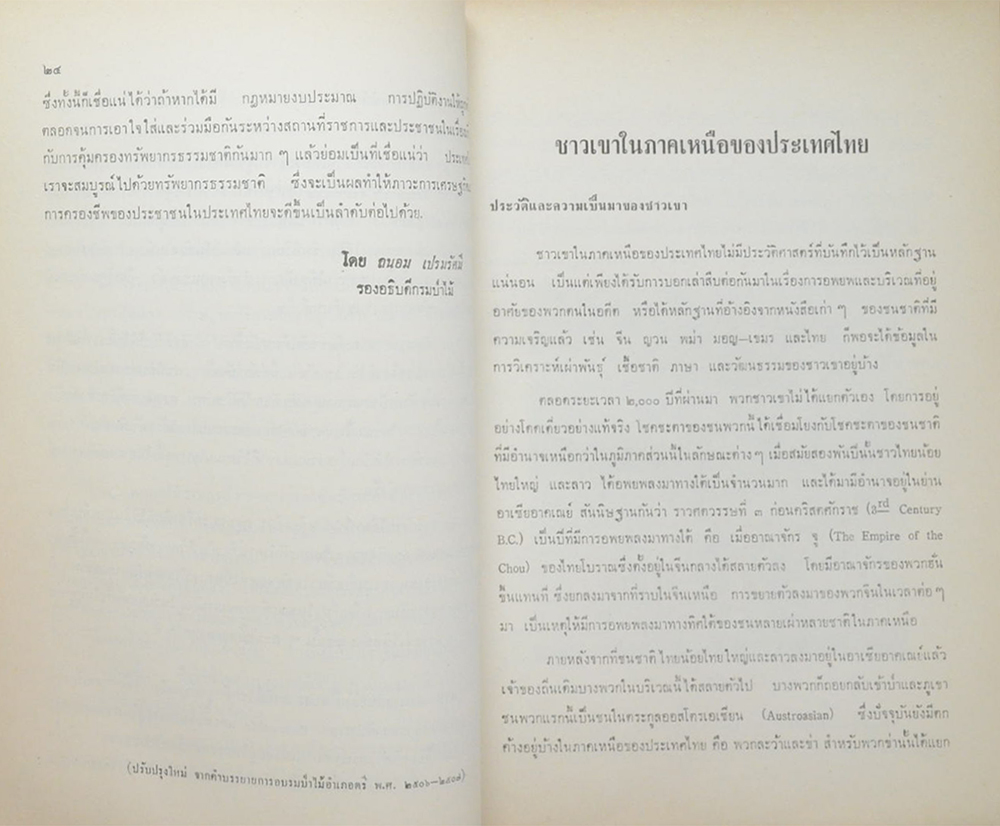 ๒๔
ซึ่งทั้งนี้ก็เชื่อแน่ได้ว่าถ้าหากได้มี กฎหมายงบประมาณ การปฏิบัติงาน
ตลอดจนการเอาใจใส่และร่วมมือกันระหว่างสถานที่ราชการและประชาชนใน
กับการคุ้มครองทรัพยากรธรรมชาติกันมาก ๆ แล้วย่อมเป็นที่เชื่อแน่ว่า ประเทศ
เราจะสมบูรณ์ไปด้วยทรัพยากรธรรมชาติ ซึ่งจะเป็นผลทำให้ภาวะการเศรษฐกิจ
การครองชีพของประชาชนในประเทศไทยจะดีขึ้นเป็นลำดับต่อไปด้วย.
โดย ถนอม เปรมรัศมี
รองอธิบดีกรมป่าไม้
(ปรับปรุงใหม่ จากคำบรรยายการอบรมป่าไม้อำเภอตรี พ.ศ. ๒๕๐๖—๒๕๐๗)
ชาวเขาในภาคเหนือของประเทศไทย
ประวัติและความเป็นมาของชาวเขา
ชาวเขาในภาคเหนือของประเทศไทยไม่มีประวัติศาสตร์ที่บันทึกไว้เป็นหลักฐาน
แน่นอน เป็นแต่เพียงได้รับการบอกเล่าสืบต่อกันมาในเรื่องการอพยพและบริเวณที่อยู่
อาศัยของพวกตนในอดีต หรือได้หลักฐานที่อ้างอิงจากหนังสือเก่า ๆ ของชนชาติที่มี
ความเจริญแล้ว เช่น จีน ญวน พม่า มอญ—เขมร และไทย ก็พอจะได้ข้อมูลใน
การวิเคราะห์เผ่าพันธุ์ เชื้อชาติ ภาษา และวัฒนธรรมของชาวเขาอยู่บ้าง
ตลอดระยะเวลา ๒,๐๐๐ ปีที่ผ่านมา พวกชาวเขาไม่ได้แยกตัวเอง โดยการอยู่
อย่างโดดเดี่ยวอย่างแท้จริง โชคชะตาของชนพวกนี้ได้เชื่อมโยงกับโชคชะตาของชนชาติ
ที่มีอำนาจเหนือกว่าในภูมิภาคส่วนนี้ในลักษณะต่าง ๆ เมื่อสมัยสองพันปีนั้นชาวไทยน้อย
ไทยใหญ่ และลาว ได้อพยพลงมาทางใต้เป็นจำนวนมาก และได้มามีอำนาจอยู่ในย่าน
อาเซียอาคเณย์ สันนิษฐานกันว่า ราวศตวรรษที่ ๓ ก่อนคริสตศักราช (3rd Century
B.C.) เป็นปีที่มีการอพยพลงมาทางใต้ คือ เมื่ออาณาจักร จู (The Empire of the
Chou) ของไทยโบราณซึ่งตั้งอยู่ในจีนกลางได้สลายตัวลง โดยมีอาณาจักรของพวกฮั่น
ขึ้นแทนที่ ซึ่งยกลงมาจากที่ราบในจีนเหนือ การขยายตัวลงมาของพวกจีนในเวลาต่อ ๆ
มา เป็นเหตุให้มีการอพยพลงมาทางทิศใต้ของชนหลายเผ่าหลายชาติในภาคเหนือ
ภายหลังจากที่ชนชาติไทยน้อยไทยใหญ่และลาวลงมาอยู่ในอาเซียอาคเณย์แล้ว
เจ้าของถิ่นเดิมบางพวกในบริเวณนี้ได้สลายตัวไป บางพวกก็ถอยกลับเข้าป่าและภูเขา
ชนพวกแรกนี้เป็นชนในตระกูลออสโตรเอเซียน (Austroasian) ซึ่งปัจจุบันยังมีตก
ค้างอยู่บ้างในภาคเหนือของประเทศไทย คือ พวกละว้าและข่า สำหรับพวกข่านั้นได้แยก